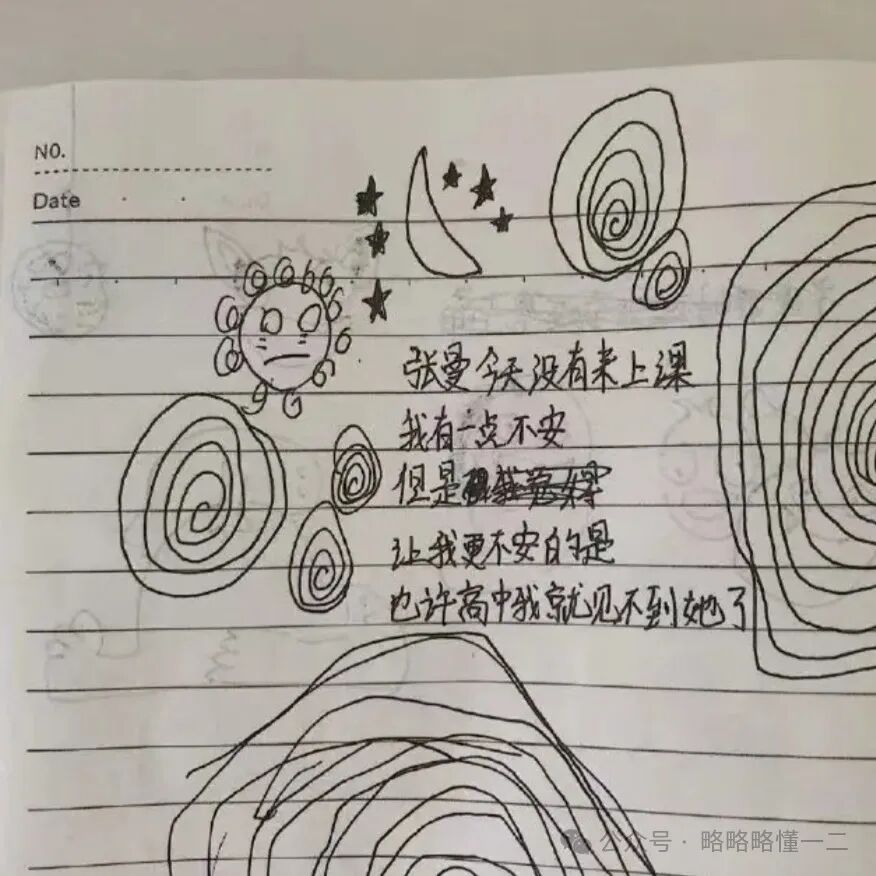 NO.
Date
张曼今天没有来上课
我有一点不安
但是
让我更不安的是
也许高中我就见不到她了
公众号 · 略略略懂一二